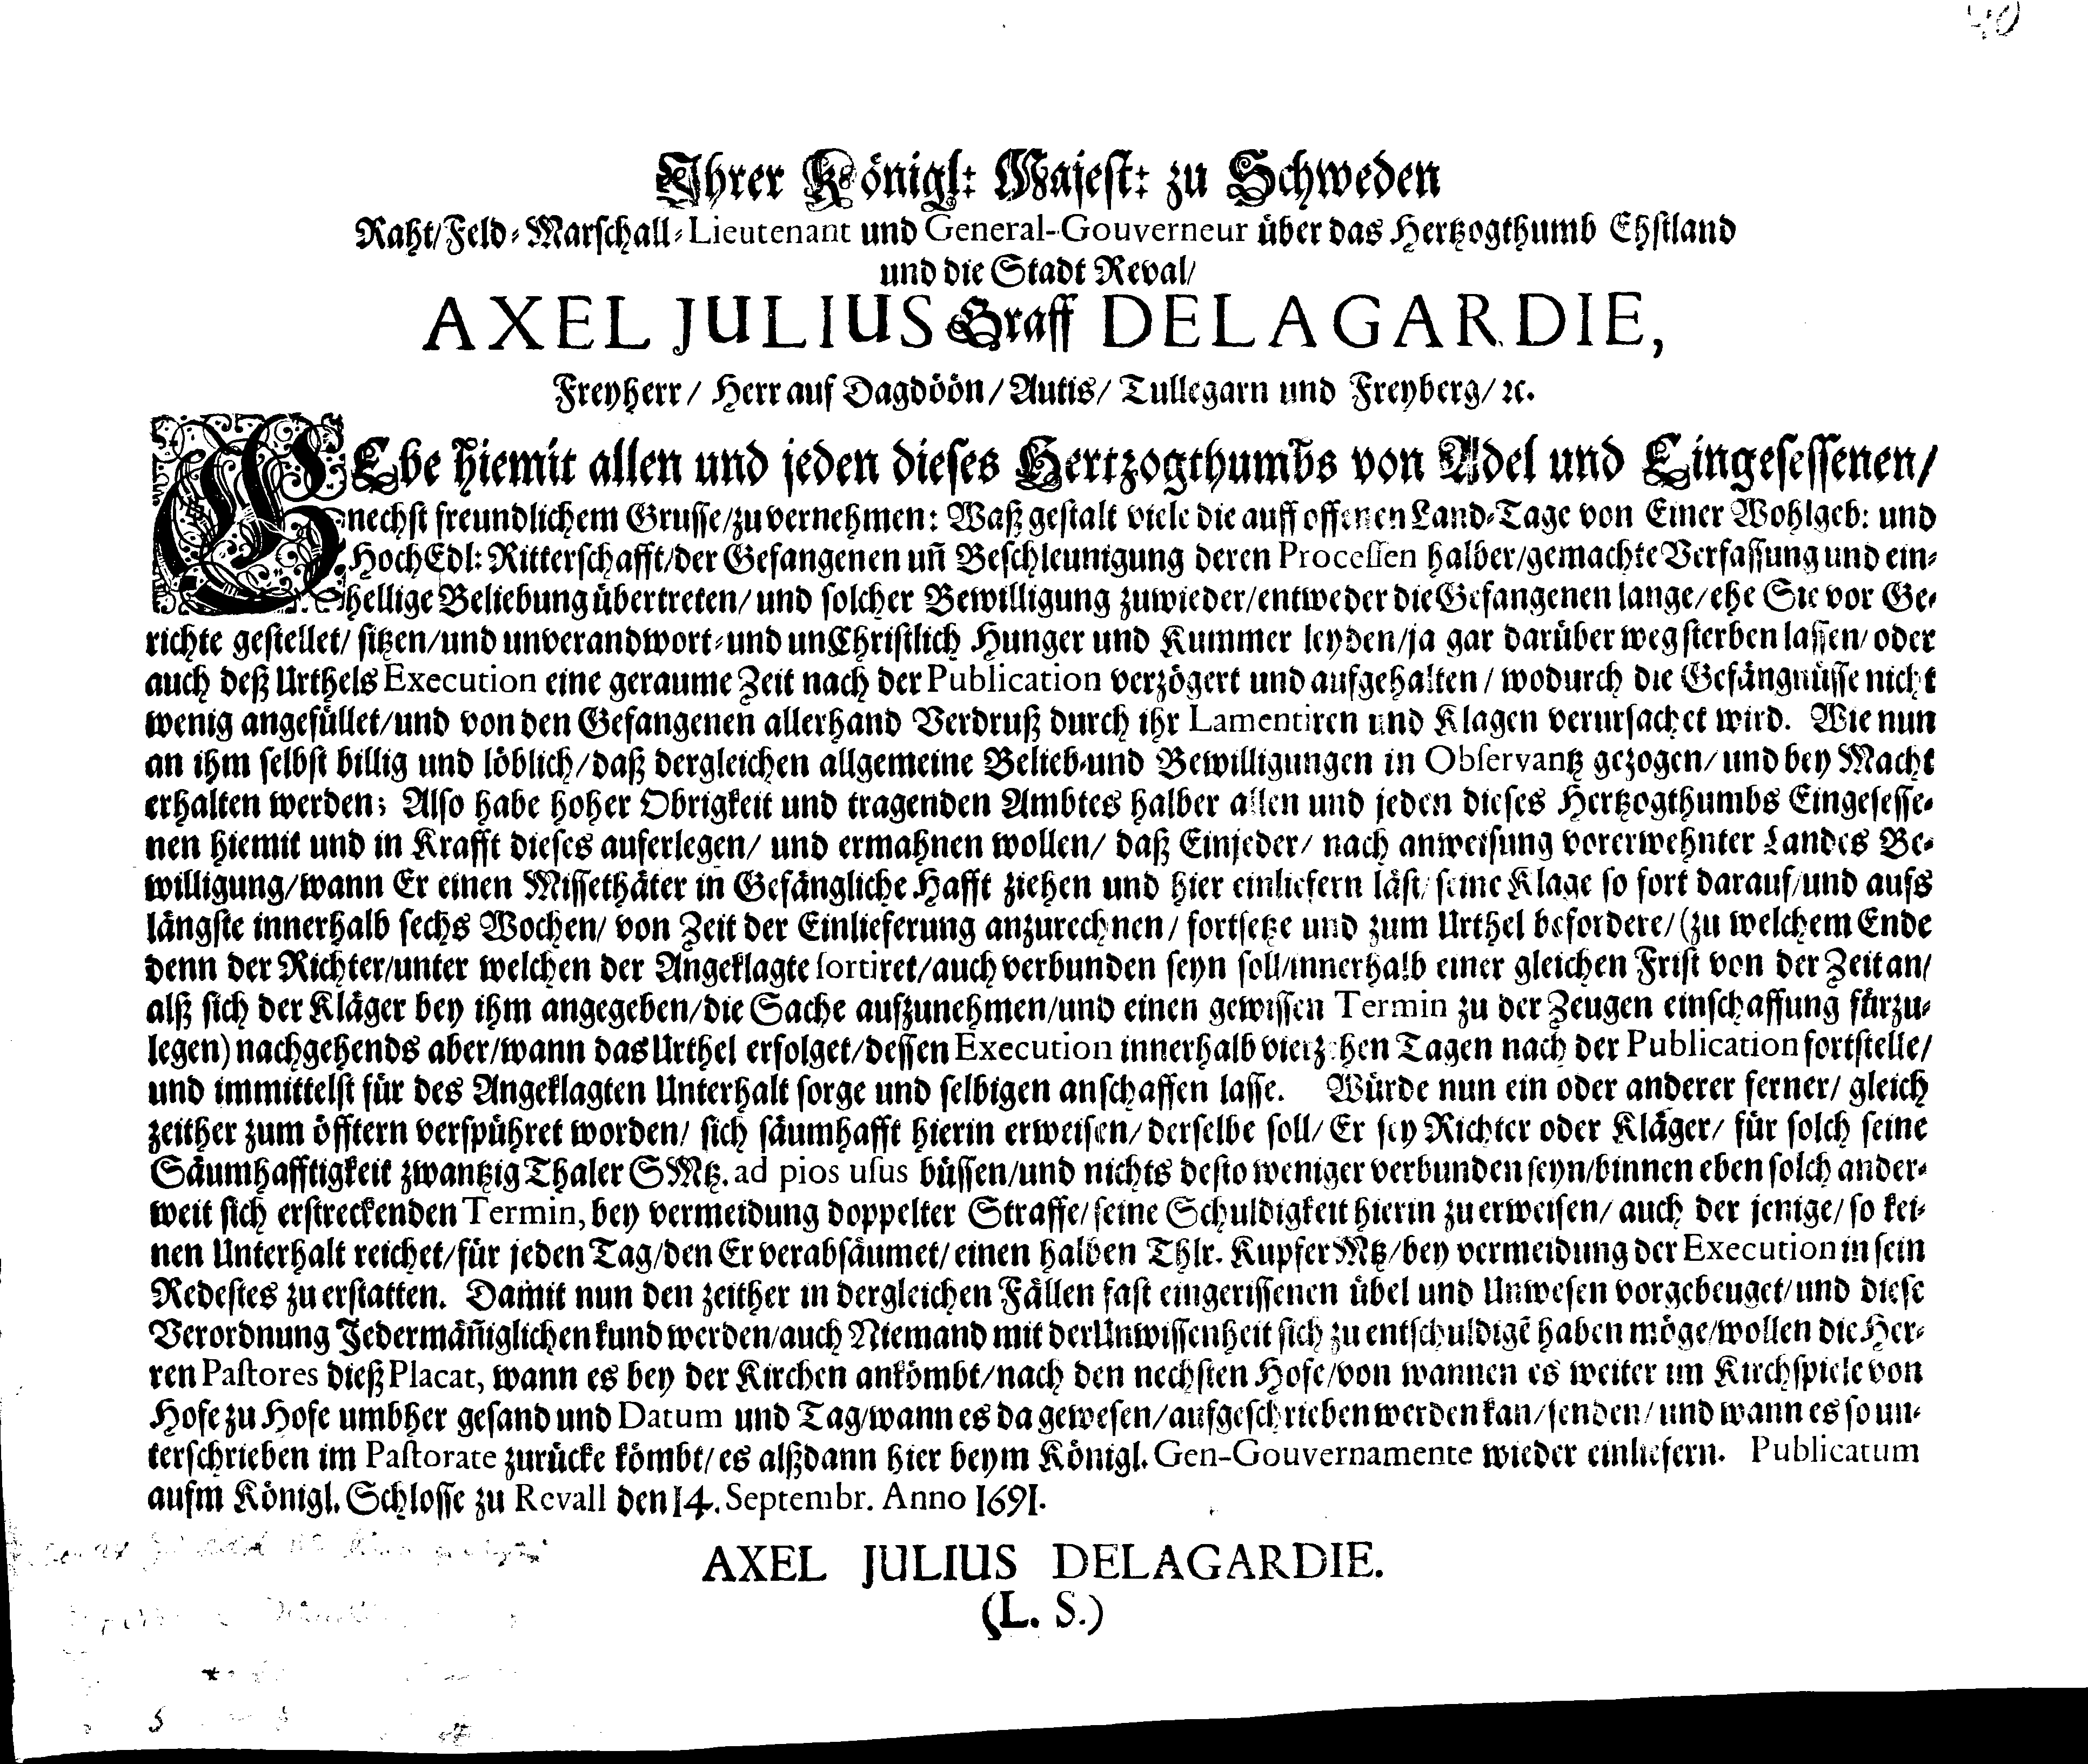 Ihrer Königl: Majest: zu Schweden
Raht/Feld-Marschall-Lieutenant und General-Gouverneur über das Hertzogthumb Ehstland
und die Stadt Reval/
AXEL JULIUS Graff DELAGARDIE,
Freyherr/ Herr auf Dagdöön/Autis/ Tullegarn und Freyberg/ ꝛc.
GEbe hiemit allen und jeden dieses Hertzogthumbs von Adel und Eingesessenen/
nechst freundlichem Grusse/zu vernehmen: Waß gestalt viele die auff offenen Land-Tage von Einer Wohlgeb: und
HochEdl: Ritterschafft/der Gefangenen uñ Beschleunigung deren Processen halber/gemachte Verfassung und ein-
hellige Beliebung übertreten/und solcher Bewilligung zuwieder/entweder die Gefangenen lange/ehe Sie vor Ge-
richte gestellet/ sitzen/und unverandwort-und unChristlich Hunger und Kummer leyden/ja gar darüber wegsterben lassen/ oder
auch deß Urthels Execution eine geraume Zeit nach der Publication verzögert und aufgehalten/ wodurch die Gefängnüsse nicht
wenig angefüllet/und von den Gefangenen allerhand Verdruß durch ihr Lamentiren und Klagen verursachet wird. Wie nun
an ihm selbst billig und löblich/daß dergleichen allgemeine Belieb-und Bewilligungen in Observantz gezogen/und bey Macht
erhalten werden; Also habe hoher Obrigkeit und tragenden Ambtes halber allen und jeden dieses Hertzogthumbs Eingesesse-
nen hiemit und in Krafft dieses auferlegen/ und ermahnen wollen/ daß Einjeder/ nach anweisung vorerwehnter Landes Be-
willigung/wann Er einen Missethäter in Gefängliche Hafft ziehen und hier einliefern läst/ seine Klage so fort darauf/und aufs
längste innerhalb sechs Wochen/ von Zeit der Einlieferung anzurechnen/ fortsetze und zum Urthel befordere/(zu welchem Ende
denn der Richter/unter welchen der Angeklagte sortiret/auch verbunden seyn soll/innerhalb einer gleichen Frist von der Zeit an/
alß sich der Kläger bey ihm angegeben/die Sache aufzunehmen/und einen gewissen Termin zu der Zeugen einschaffung fürzu-
legen) nachgehends aber/wann das Urthel erfolget/dessen Execution innerhalb vierzehen Tagen nach der Publication fortstelle/
und immittelst für des Angeklagten Unterhalt sorge und selbigen anschaffen lasse. Würde nun ein oder anderer ferner/ gleich
zeither zum öfftern verspühret worden/ sich säumhafft hierin erweisen/ derselbe soll/ Er sey Richter oder Kläger/ für solch seine
Säumhafftigkeit zwantzig Thaler SMtz. ad pios usus büssen/und nichts desto weniger verbunden seyn/binnen eben solch ander-
weit sich erstreckenden Termin, bey vermeidung doppelter Straffe/ seine Schuldigkeit hierin zu erweisen/ auch der jenige/ so kei-
nen Unterhalt reichet/für jeden Tag/den Er verabsäumet/ einen halben Thlr. Kupfer Mtz/bey vermeidung der Execution in sein
Redestes zu erstatten. Damit nun den zeither in dergleichen Fällen fast eingerissenen übel und Unwesen vorgebeuget/und diese
Verordnung Jedermäñiglichen kund werden/auch Niemand mit der Unwissenheit sich zu entschuldigē haben möge/wollen die Her-
ren Pastores dieß Placat, wann es bey der Kirchen ankömbt/nach den nechsten Hofe/von wannen es weiter im Kirchspiele von
Hofe zu Hofe umbher gesand und Datum und Tag/wann es da gewesen/aufgeschrieben werden kan/senden/ und wann es so un-
terschrieben im Pastorate zurücke kömbt/es alßdann hier beym Königl. Gen-Gouvernamente wieder einliefern. Publicatum
aufm Königl. Schlosse zu Revall den 14. Septembr. Anno 1691.
AXEL JULIUS DELAGARDIE.
(L. S.)